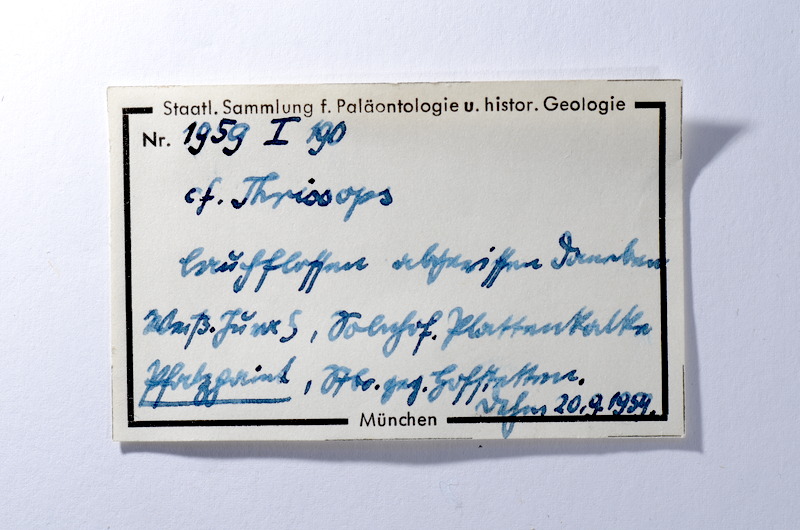 Staatl. Sammlung f. Paläontologie u. histor. Geologie
Nr. 1959 I 190
cf. Thrissops
Bauchflossen abgerissen daneben
Weiß. Jura ζ, Solnhof. Plattenkalke
Pfalzpaint, Stbr. geg. Hofstetten.
Dehm 20.9.1959.
München